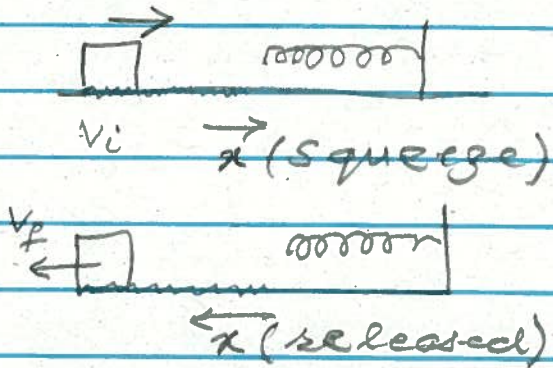 Vi
x (squeeze)
Vf
x (released)